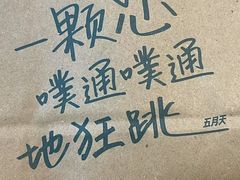 一颗心
噗通噗通
地狂跳
五月天